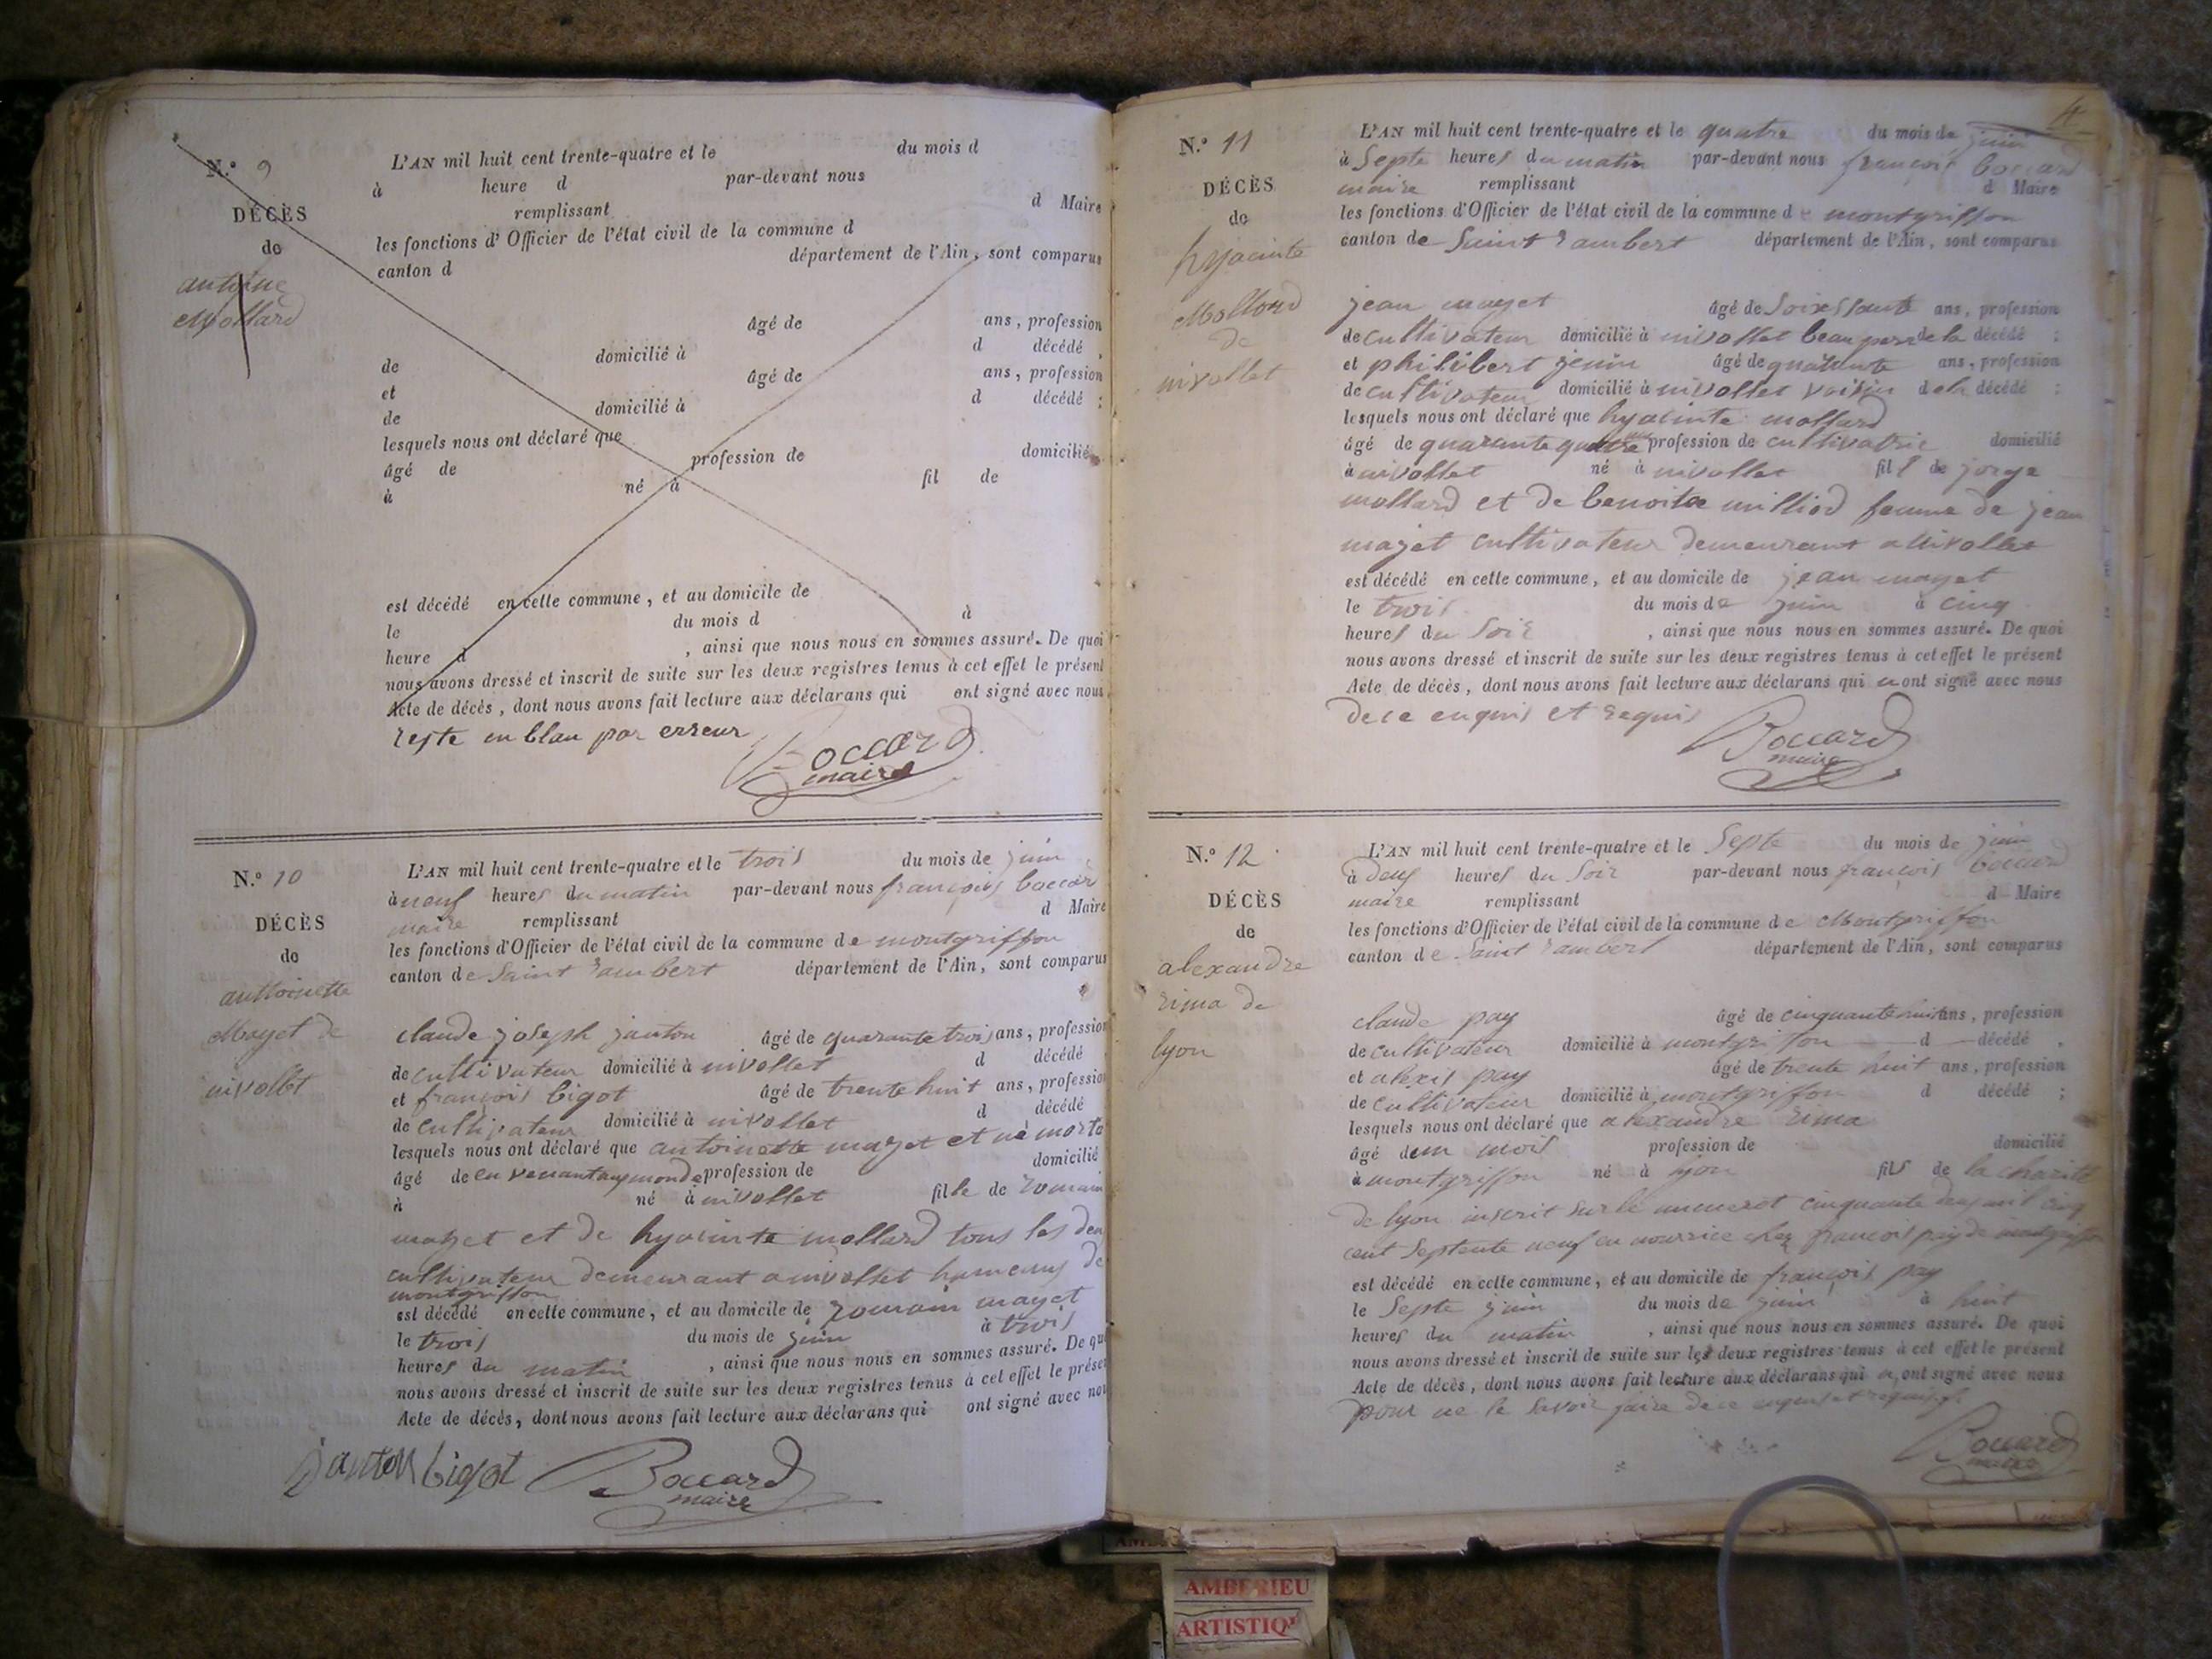 N.º 9
DÉCÈS
de
antoine
Mollard
L'AN mil huit cent trente-quatre et le du mois d
à heure d par-devant nous
d Maire
remplissant
les fonctions d'Officier de l'état civil de la commune d
canton d département de l'Ain, sont comparus
âgé de ans, profession
de domicilié à d décédé,
et âgé de ans, profession
de domicilié à d décédé ;
lesquels nous ont déclaré que
âgé de profession de domicilié
à né à fil de
est décédé en cette commune, et au domicile de
le du mois d à
heure d , ainsi que nous nous en sommes assuré. De quoi
nous avons dressé et inscrit de suite sur les deux registres tenus à cet effet le présent
Acte de décès, dont nous avons fait lecture aux déclarans qui ont signé avec nous
reste en blan par erreur
Boccard
maire
N.º 10
DÉCÈS
de
anttoinette
Mayet de
nivollet
L'AN mil huit cent trente-quatre et le trois du mois de juin
à neuf heures du matin par-devant nous françois boccar
d Maire
maire remplissant
les fonctions d'Officier de l'état civil de la commune de montgriffon
canton de Saint rambert département de l'Ain, sont comparus
claude joseph janton âgé de quarante trois ans, profession
de cultivateur domicilié à nivollet d décédé
et françois bigot âgé de trente huit ans, profession
de cultivateur domicilié à nivollet d décédé
lesquels nous ont déclaré que antoinette mayet et né morte
âgé de en venant au monde profession de domicilié
à né à nivollet fille de romain
mayet et de hyacinte mollard tous les deu
cultivateur demeurant a nivollet hameaux de
montgriffon
est décédé en cette commune, et au domicile de romain mayet
le trois du mois de juin à trois
heures du matin , ainsi que nous nous en sommes assuré. De quo
nous avons dressé et inscrit de suite sur les deux registres tenus à cet effet le présen
Acte de décès, dont nous avons fait lecture aux déclarans qui ont signé avec nou
janton bigot Boccard
maire
4
N.º 11
DÉCÈS
de
hyacinte
Mollard
de
nivollet
L'AN mil huit cent trente-quatre et le quatre du mois de juin
à Septe heures du matin par-devant nous françois boccard
maire remplissant d Maire
les fonctions d'Officier de l'état civil de la commune de montgriffon
canton de Saint rambert département de l'Ain, sont comparus
jean mayet âgé de Soixssante ans, profession
de cultivateur domicilié à nivollet beau pere de la décédé ;
et philibert jenin âgé de quarante ans, profession
de cultivateur domicilié à nivollet voisin de la décédé ;
lesquels nous ont déclaré que hyacinte mollard
âgé de quarante quatre ans profession de cultivatrice domicilié
à nivollet né à nivollet fil de jorge
mollard et de benoite milliod femme de jean
mayet cultivateur demeurant a Nivollet
est décédé en cette commune, et au domicile de jean mayet
le trois du mois de juin à cinq
heures du Soir , ainsi que nous nous en sommes assuré. De quoi
nous avons dressé et inscrit de suite sur les deux registres tenus à cet effet le présent
Acte de décès, dont nous avons fait lecture aux déclarans qui n ont signé avec nous
de ce enquis et requis
Boccard
maire
N.º 12
DÉCÈS
de
alexandre
rima de
lyon
L'AN mil huit cent trente-quatre et le Septe du mois de juin
à deux heures du Soir par-devant nous françois boccard
maire remplissant d Maire
les fonctions d'Officier de l'état civil de la commune de Montgriffon
canton de Saint rambert département de l'Ain, sont comparus
claude pay âgé de cinquante huit ans, profession
de cultivateur domicilié à montgriffon d décédé,
et alexis pay âgé de trente huit ans, profession
de cultivateur domicilié à montgriffon d décédé ;
lesquels nous ont déclaré que alexandre rima
âgé dun mois profession de domicilié
à montgriffon né à lyon fils de la charité
de lyon inscrit sur le numerot cinquante deux mil cinq
cent Septente neuf en nourrice chez francois pay de montgriffon
est décédé en cette commune, et au domicile de françois pay
le Septe juin du mois de juin à huit
heures du matin , ainsi que nous nous en sommes assuré. De quoi
nous avons dressé et inscrit de suite sur les deux registres tenus à cet effet le présent
Acte de décès, dont nous avons fait lecture aux déclarans qui n ont signé avec nous
pour ne le Savoir faire de ce enquis et requis
Boccard
maire
AMBERIEU
ARTISTIQ